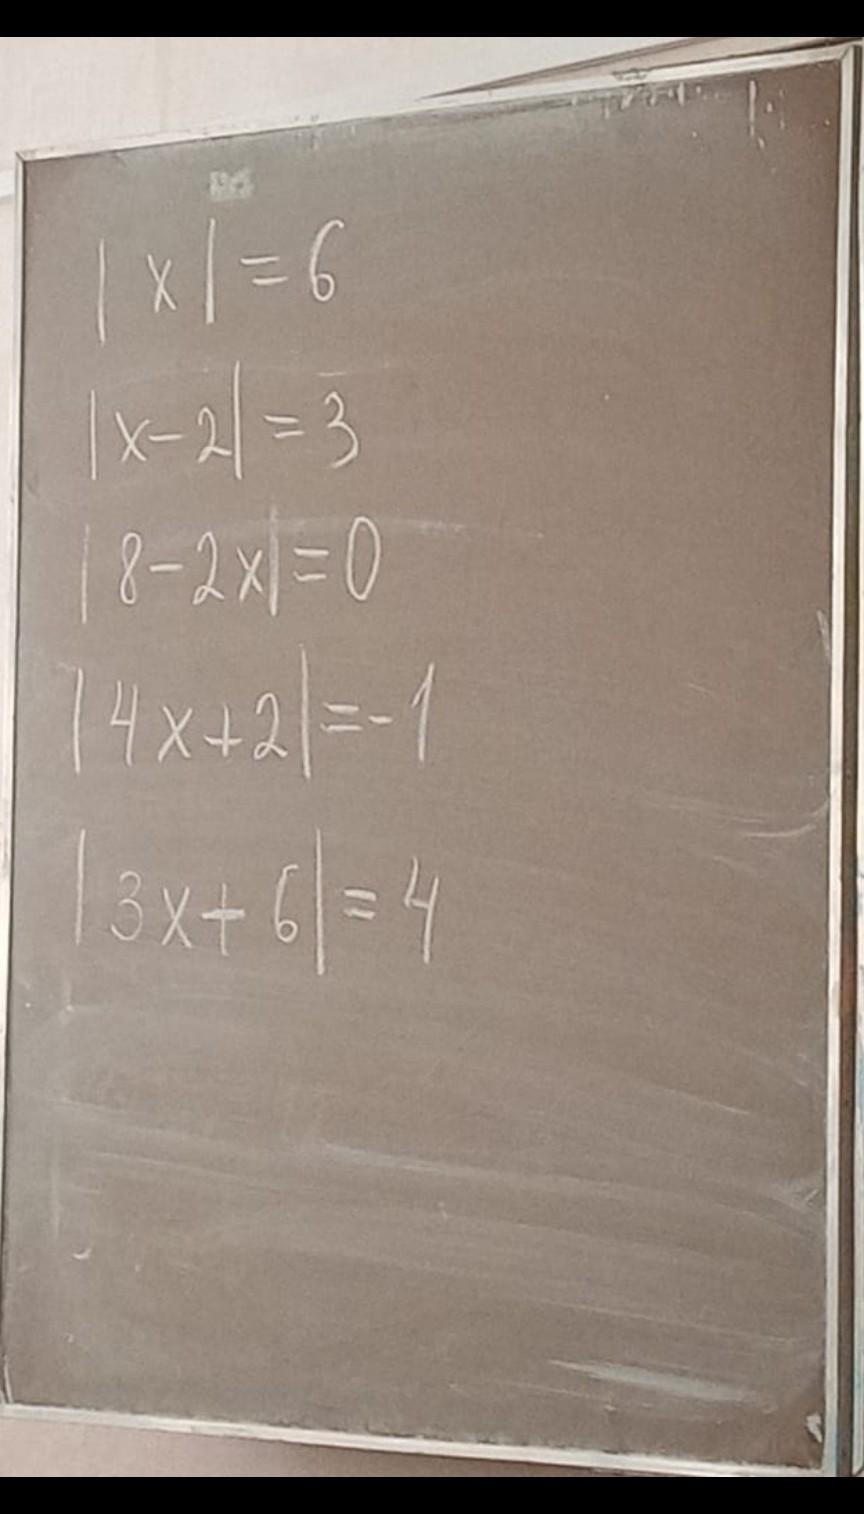 |x|=6
|x-2|=3
|8-2x|=0
|4x+2|=-1
|3x+6|=4